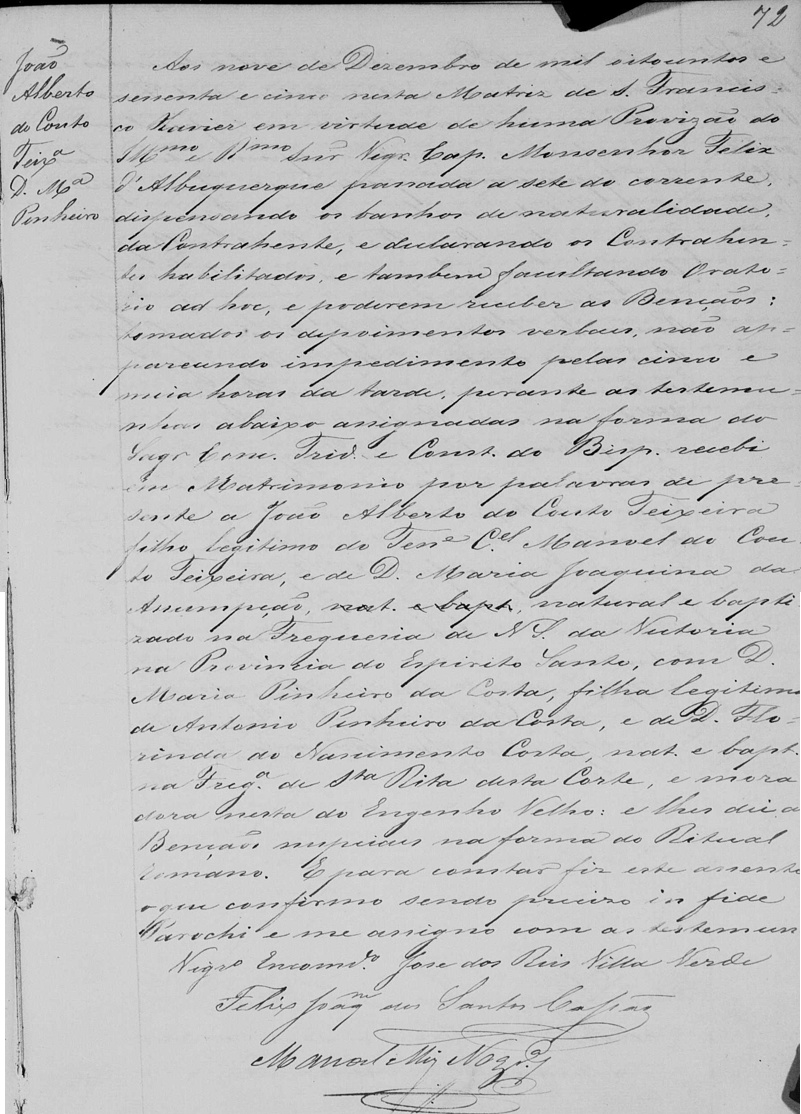 72
João
Alberto
do Couto
Teixª
D. Mª
Pinheiro
Aos nove de Dezembro de mil oitocentos e
sessenta e cinco nesta Matriz de S. Francis=
co Xavier em virtude de huma Provizão do
Illmo e Rmo Snr Vigr. Cap. Monsenhor Felix
d'Albuquerque passada a sete do corrente,
dispensando os banhos de naturalidade,
da Contrahente, e declarando os Contrahen=
tes habilitados, e tambem facultando Orato=
rio ad hoc, e poderem receber as Bençãos:
tomados os depoimentos verbais, não ap=
parecendo impedimento pelas cinco e
meia horas da tarde, perante as testemu=
nhas abaixo assignadas na forma do
Sagr. Conc. Trid. e Const. do Bisp. recebi
em Matrimonio por palavras de pre=
sente a João Alberto do Couto Teixeira
filho legitimo do Tene Cel Manoel do Cou=
to Teixeira, e de D. Maria Joaquina da
Assumpção, nat. e bapt., natural e bapti
zado na Freguesia de N S. da Victoria
na Provincia do Espirito Santo, com D.
Maria Pinheiro da Costa, filha legitima
de Antonio Pinheiro da Costa, e de D. Flo=
rinda do Nascimento Costa, nat. e bapt.
na Fregª. de Sta Rita desta Corte, e mora
dora nesta do Engenho Velho: e lhes dei as
Bençãos nupciais na forma do Ritual
Romano. E para constar fiz este assento
o que confirmo sendo precizo in fide
Parochi e me assigno com as testemun
Vigro Encomdo. José dos Reis Villa Verde
Felix Joaqm dos Santos
Manoel Miz